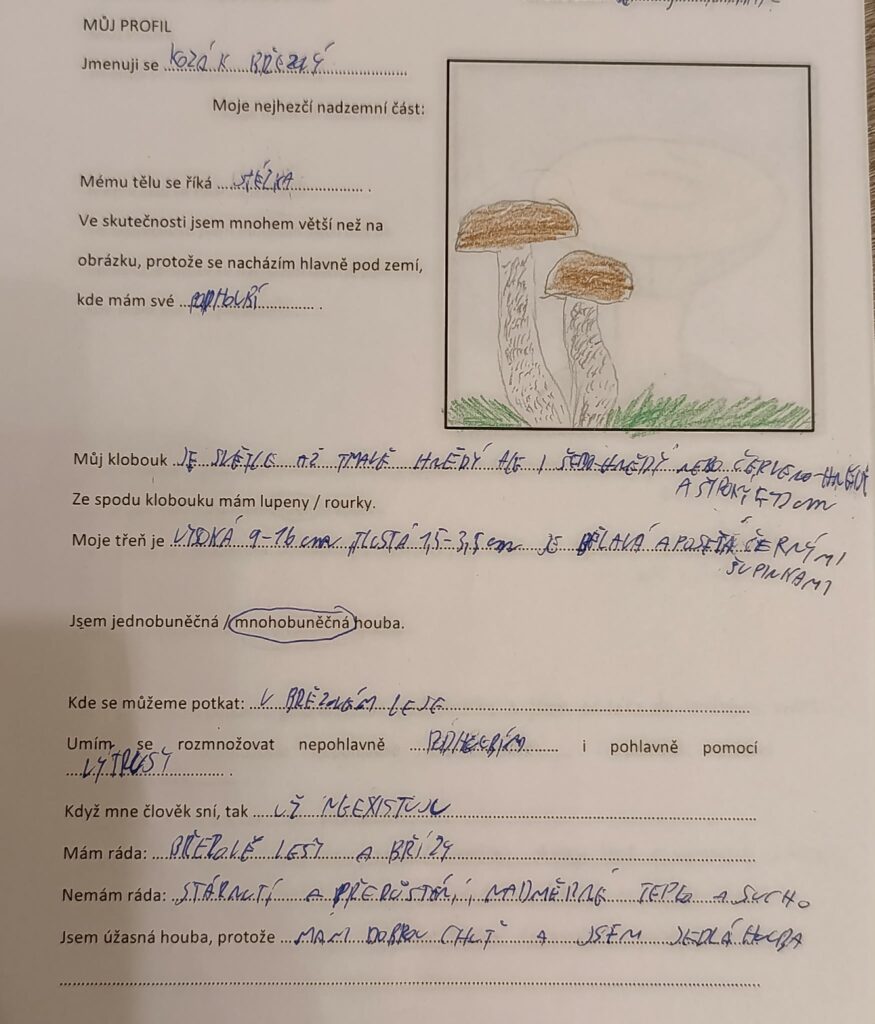 MŮJ PROFIL
Jmenuji se KOZÁK BŘEZOVÝ
Moje nejhezčí nadzemní část:
Mému tělu se říká STÉLKA.
Ve skutečnosti jsem mnohem větší než na
obrázku, protože se nacházím hlavně pod zemí,
kde mám své PODHOUBÍ.
Můj klobouk JE SVĚTLE AŽ TMAVĚ HNĚDÝ ALE I ŠEDO-HNĚDÝ NEBO ČERVENO-HNĚDÝ
A ŠIROKÝ cm
Ze spodu klobouku mám lupeny / rourky.
Moje třeň je VYSOKÁ 9-16 cm TLUSTÁ 1,5-3,5 cm JE BĚLAVÁ A POSETÁ ČERNÝMI
ŠUPINKAMI
Jsem jednobuněčná / mnohobuněčná houba.
Kde se můžeme potkat: V BŘEZOVÉM LESE
Umím se rozmnožovat nepohlavně i pohlavně pomocí
VÝTRUSY.
Když mne člověk sní, tak UŽ NEEXISTUJU
Mám ráda: LESY A BŘÍZY
Nemám ráda: STÁRNUTÍ A PŘERŮSTÁNÍ, NADMĚRNÉ TEPLO A SUCHO
Jsem úžasná houba, protože MÁM DOBROU CHUŤ A JSEM JEDLÁ HOUBA